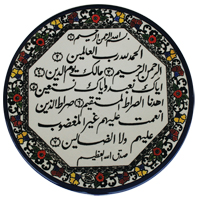 بسم الله الرحمن الرحيم ١
الحمد لله رب العلمين ٢
الرحمن الرحيم ٣ مالك يوم الدين ٤
اياك نعبد واياك نستعين ٥
اهدنا الصراط المستقيم ٦ صراط الذين
انعمت عليهم غير المغضوب
عليهم ولا الضالين ٧
صدق الله العظيم